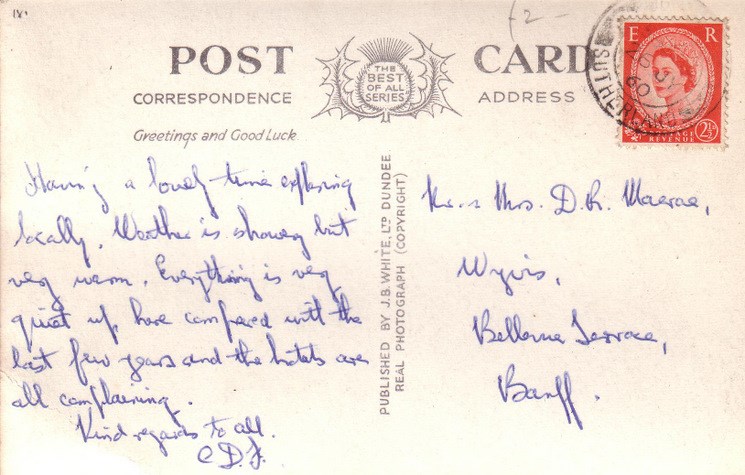 POST CARD
THE
BEST
OF ALL
SERIES
CORRESPONDENCE
ADDRESS
Greetings and Good Luck.
Having a lovely time exploring
locally. Weather is showery but
very warm. Everything is very
quiet up here compared with the
last few years and the hotels are
all complaining.
Kind regards to all.
C.D.F.
PUBLISHED BY J.B. WHITE, LTD DUNDEE
REAL PHOTOGRAPH (COPYRIGHT)
E R
2½D
POSTAGE
REVENUE
SUTHERLAND
60
Mr. & Mrs. D. R. Macrae,
Wyvis,
Bellevue Terrace,
Banff.